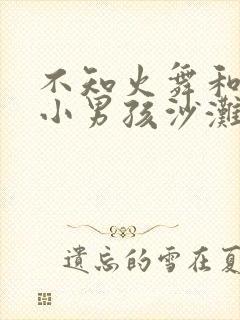 不知火舞和
小男孩沙滩
遗忘的雪在夏